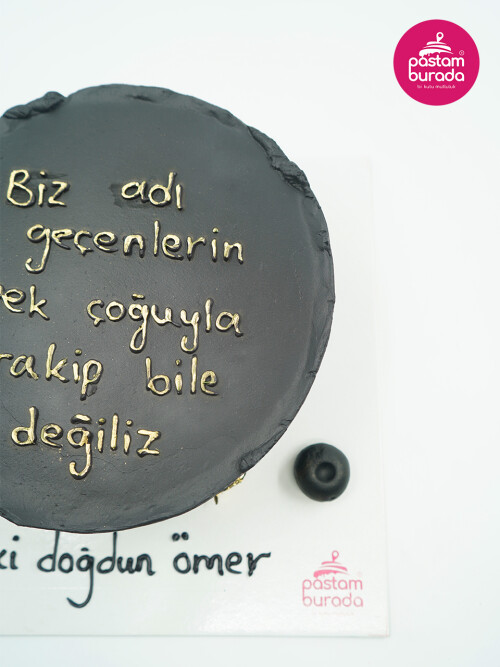 pastam
burada
bi kutu mutluluk
Biz adı
geçenlerin
çoğuyla
bile
değiliz
doğdun ömer
pastam
burada